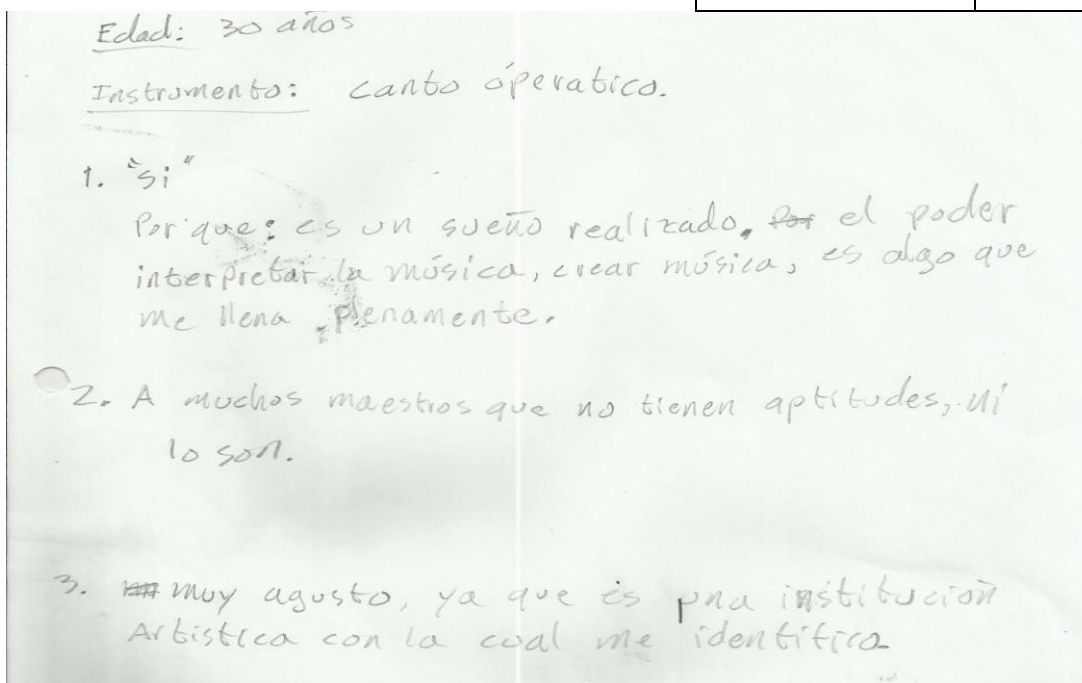 Edad: 30 años
Instrumento: canto óperatico.
1. "si"
Por que: es un sueño realizado. el poder
interpretar la música, crear música, es algo que
me llena plenamente.
2. A muchos maestros que no tienen aptitudes, ni
lo son.
3. muy agusto, ya que es una institución
Artistica con la cual me identifico